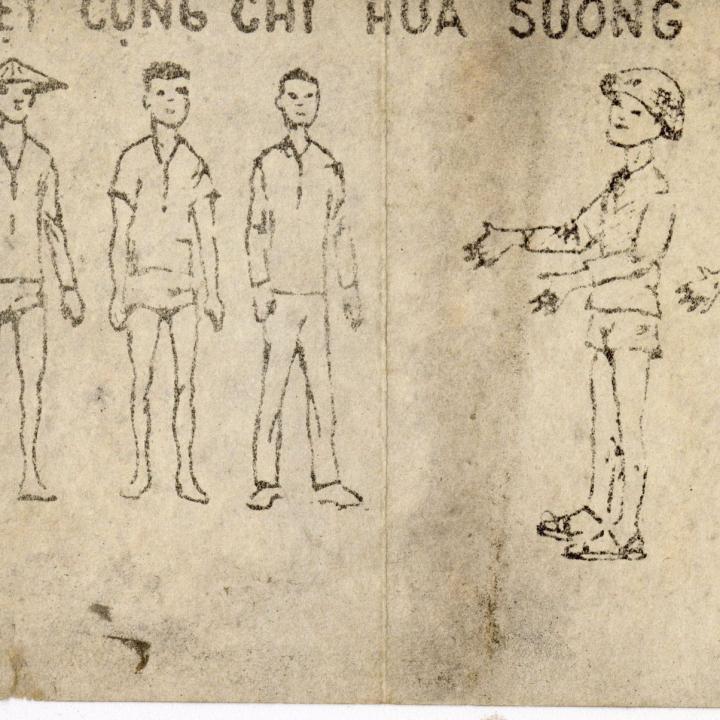 CỘNG CHỈ HỨA SUÔNG